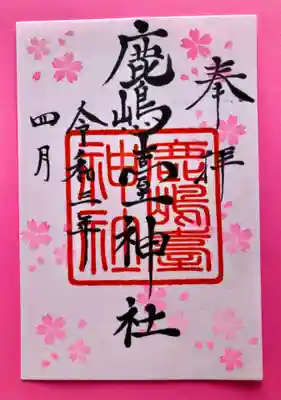 奉拝
鹿嶋臺神社
令和三年
四月
鹿嶋臺
神社